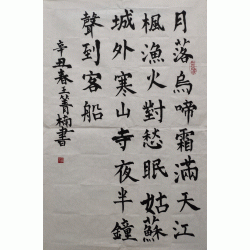 月落烏啼霜滿天江
楓漁火對愁眠姑蘇
城外寒山寺夜半鐘
聲到客船
辛丑春王菁楠書